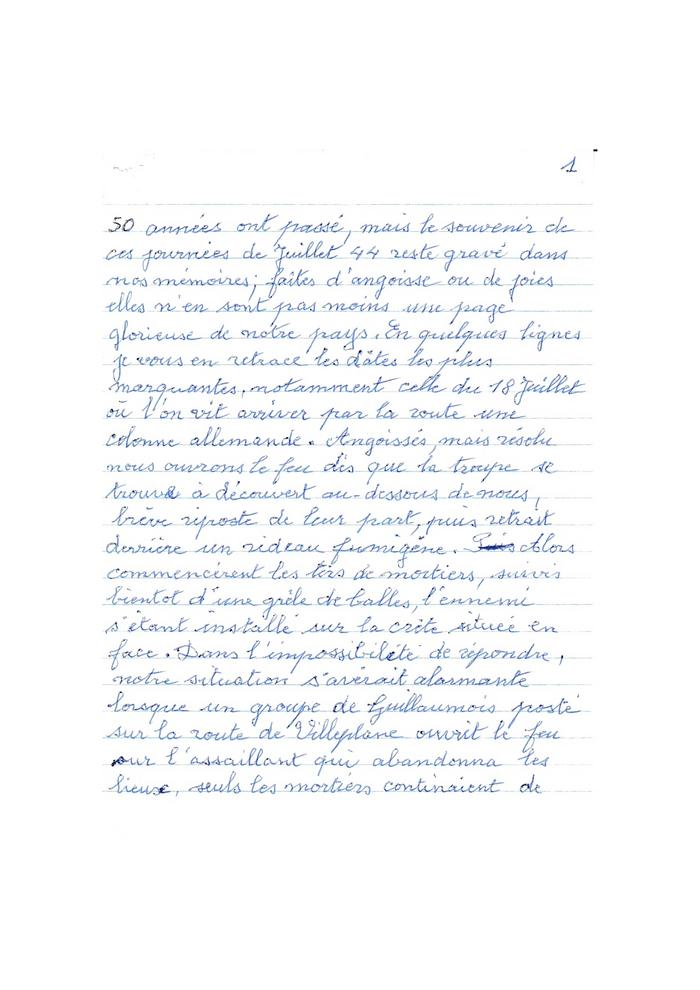 1
50 années ont passé, mais le souvenir de
ces journées de Juillet 44 reste gravé dans
nos mémoires; faîtes d'angoisse ou de joies
elles n'en sont pas moins une page
glorieuse de notre pays. En quelques lignes
je vous en retrace les dâtes les plus
marquantes, notamment celle du 18 Juillet
où l'on vit arriver par la route une
colonne allemande. Angoissés, mais résolu
nous ouvrons le feu dès que la troupe se
trouve à découvert au-dessous de nous,
brève riposte de leur part, puis retrait
derrière un rideau fumigène. Puis Alors
commencèrent les tirs de mortiers, suivis
bientot d'une grèle de balles, l'ennemi
s'étant installé sur la crète située en
face. Dans l'impossibilité de répondre,
notre situation s'avérait alarmante
lorsque un groupe de Guillaumois posté
sur la route de Villeplane ouvrit le feu
sur l'assaillant qui abandonna les
lieux, seuls les mortiers continaient de